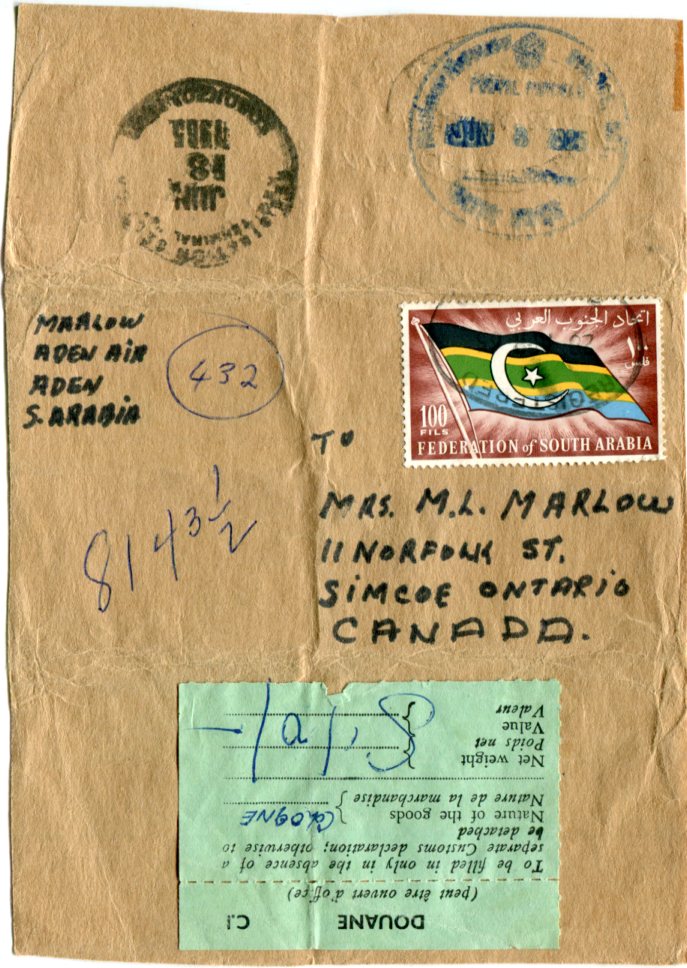 JUN
18
TERMINAL
JUN 8
MARLOW
ADEN AIR
ADEN
S. ARABIA
432
اتحاد الجنوب العربي
١٠٠
فلس
100
FILS
FEDERATION of SOUTH ARABIA
TO
MRS. M.L. MARLOW
11 NORFOLK ST.
SIMCOE ONTARIO
CANADA.
8143 1/2
DOUANE C.1
(peut être ouvert d'office)
To be filled in only in the absence of a
separate Customs declaration; otherwise to
be detached
Nature of the goods } COLOGNE
Nature de la marchandise
Net weight
Poids net
Value
Valeur